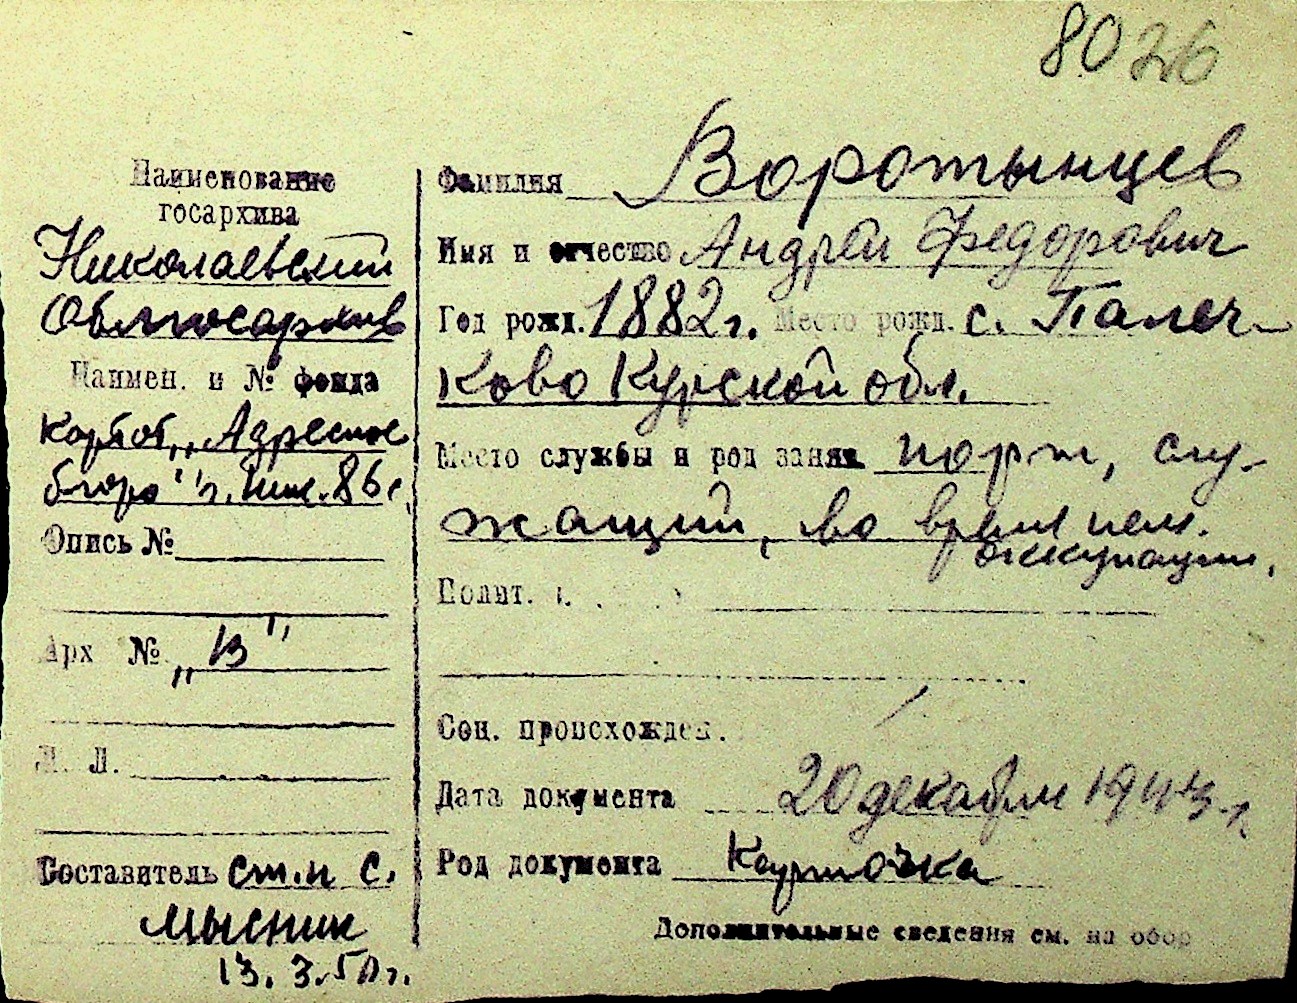 8026
Наименование
госархива
Николаевский
Облгосархив
Наимен. и № фонда
картот. „Адресное
бюро" г. Ник. 86 г.
Опись №
Арх № „В"
Л. Л.
Составитель ст. н. с.
Мысник
13. 3. 50 г.
Фамилия Воротынцев
Имя и отчество Андрей Федорович
Год рожд. 1882 г. Место рожд. с. Палеч-
ково Курской обл.
Место службы и род занят. порт, слу-
жащий, во время нем.
оккупации.
Полит.
Соц. происхожден.
Дата документа 20 декабря 1943 г.
Род документа Карточка
Дополнительные сведения см. на обор